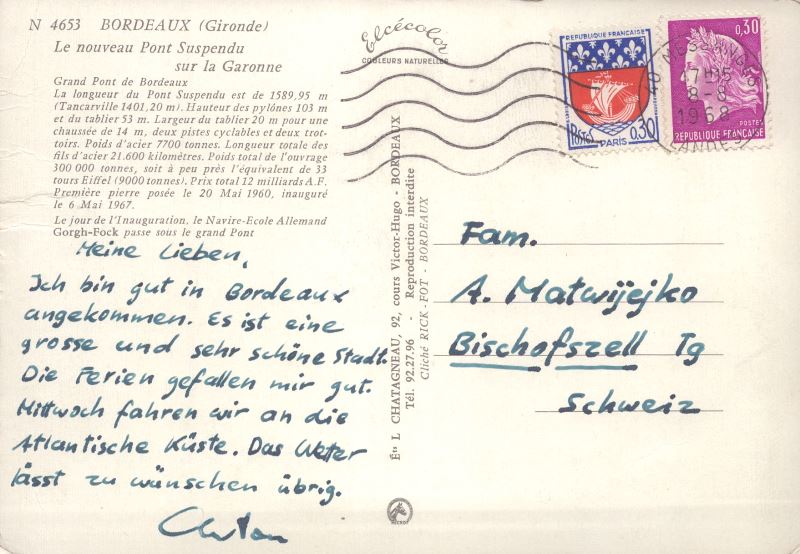 N 4653 BORDEAUX (Gironde)
Le nouveau Pont Suspendu
sur la Garonne
Grand Pont de Bordeaux
La longueur du Pont Suspendu est de 1589,95 m
(Tancarville 1401,20 m). Hauteur des pylônes 103 m
et du tablier 53 m. Largeur du tablier 20 m pour une
chaussée de 14 m, deux pistes cyclables et deux trot-
toirs. Poids d'acier 7700 tonnes. Longueur totale des
fils d'acier 21.600 kilomètres. Poids total de l'ouvrage
300 000 tonnes, soit à peu près l'équivalent de 33
tours Eiffel (9000 tonnes). Prix total 12 milliards A.F.
Première pierre posée le 20 Mai 1960, inauguré
le 6 Mai 1967.
Le jour de l'Inauguration, le Navire-Ecole Allemand
Gorgh-Fock passe sous le grand Pont
Meine Lieben,
Ich bin gut in Bordeaux
angekommen. Es ist eine
grosse und sehr schöne Stadt.
Die Ferien gefallen mir gut.
Mittwoch fahren wir an die
Atlantische Küste. Das Wetter
lässt zu wünschen übrig.
Elcécolor
COULEURS NATURELLES
Éts L CHATAGNEAU, 92, cours Victor-Hugo - BORDEAUX
Tél. 92.27.96 - Reproduction interdite
Cliché RICK-FOT - BORDEAUX
REPUBLIQUE FRANÇAISE
POSTES 0,30
PARIS
0,30
POSTES
REPUBLIQUE FRANÇAISE
40 MESSANGES
17H15
8-8
1968
LANDES
Fam.
A. Matwijejko
Bischofszell Tg
Schweiz